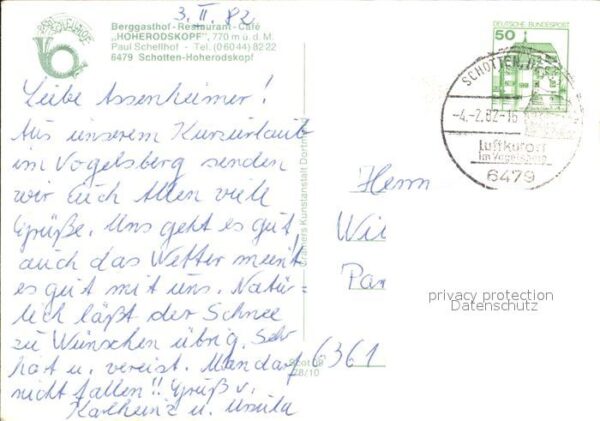 3. II. 82
Berggasthof - Restaurant - Café
„HOHERODSKOPF", 770 m ü. d. M.
Paul Schellhof - Tel. (0 60 44) 82 22
6479 Schotten-Hoherodskopf
Liebe Assenheimer!
Aus unserem Kurzurlaub
im Vogelsberg senden
wir Euch Allen viele
Grüße. Uns geht es gut
auch das Wetter meint
es gut mit uns. Natür-
lich läßt der Schnee
zu Wünschen übrig. Sehr
hart u. vereist. Man darf
nicht fallen!! Grüß v.
Karlheinz u. Ursula
Cramers Kunstanstalt Dortmund
DEUTSCHE BUNDESPOST
50
SCHOTTEN, HESS
-4.-2.82-16
Luftkurort
im Vogelsberg
6479
Herrn
Wil
Par
6361
privacy protection
Datenschutz